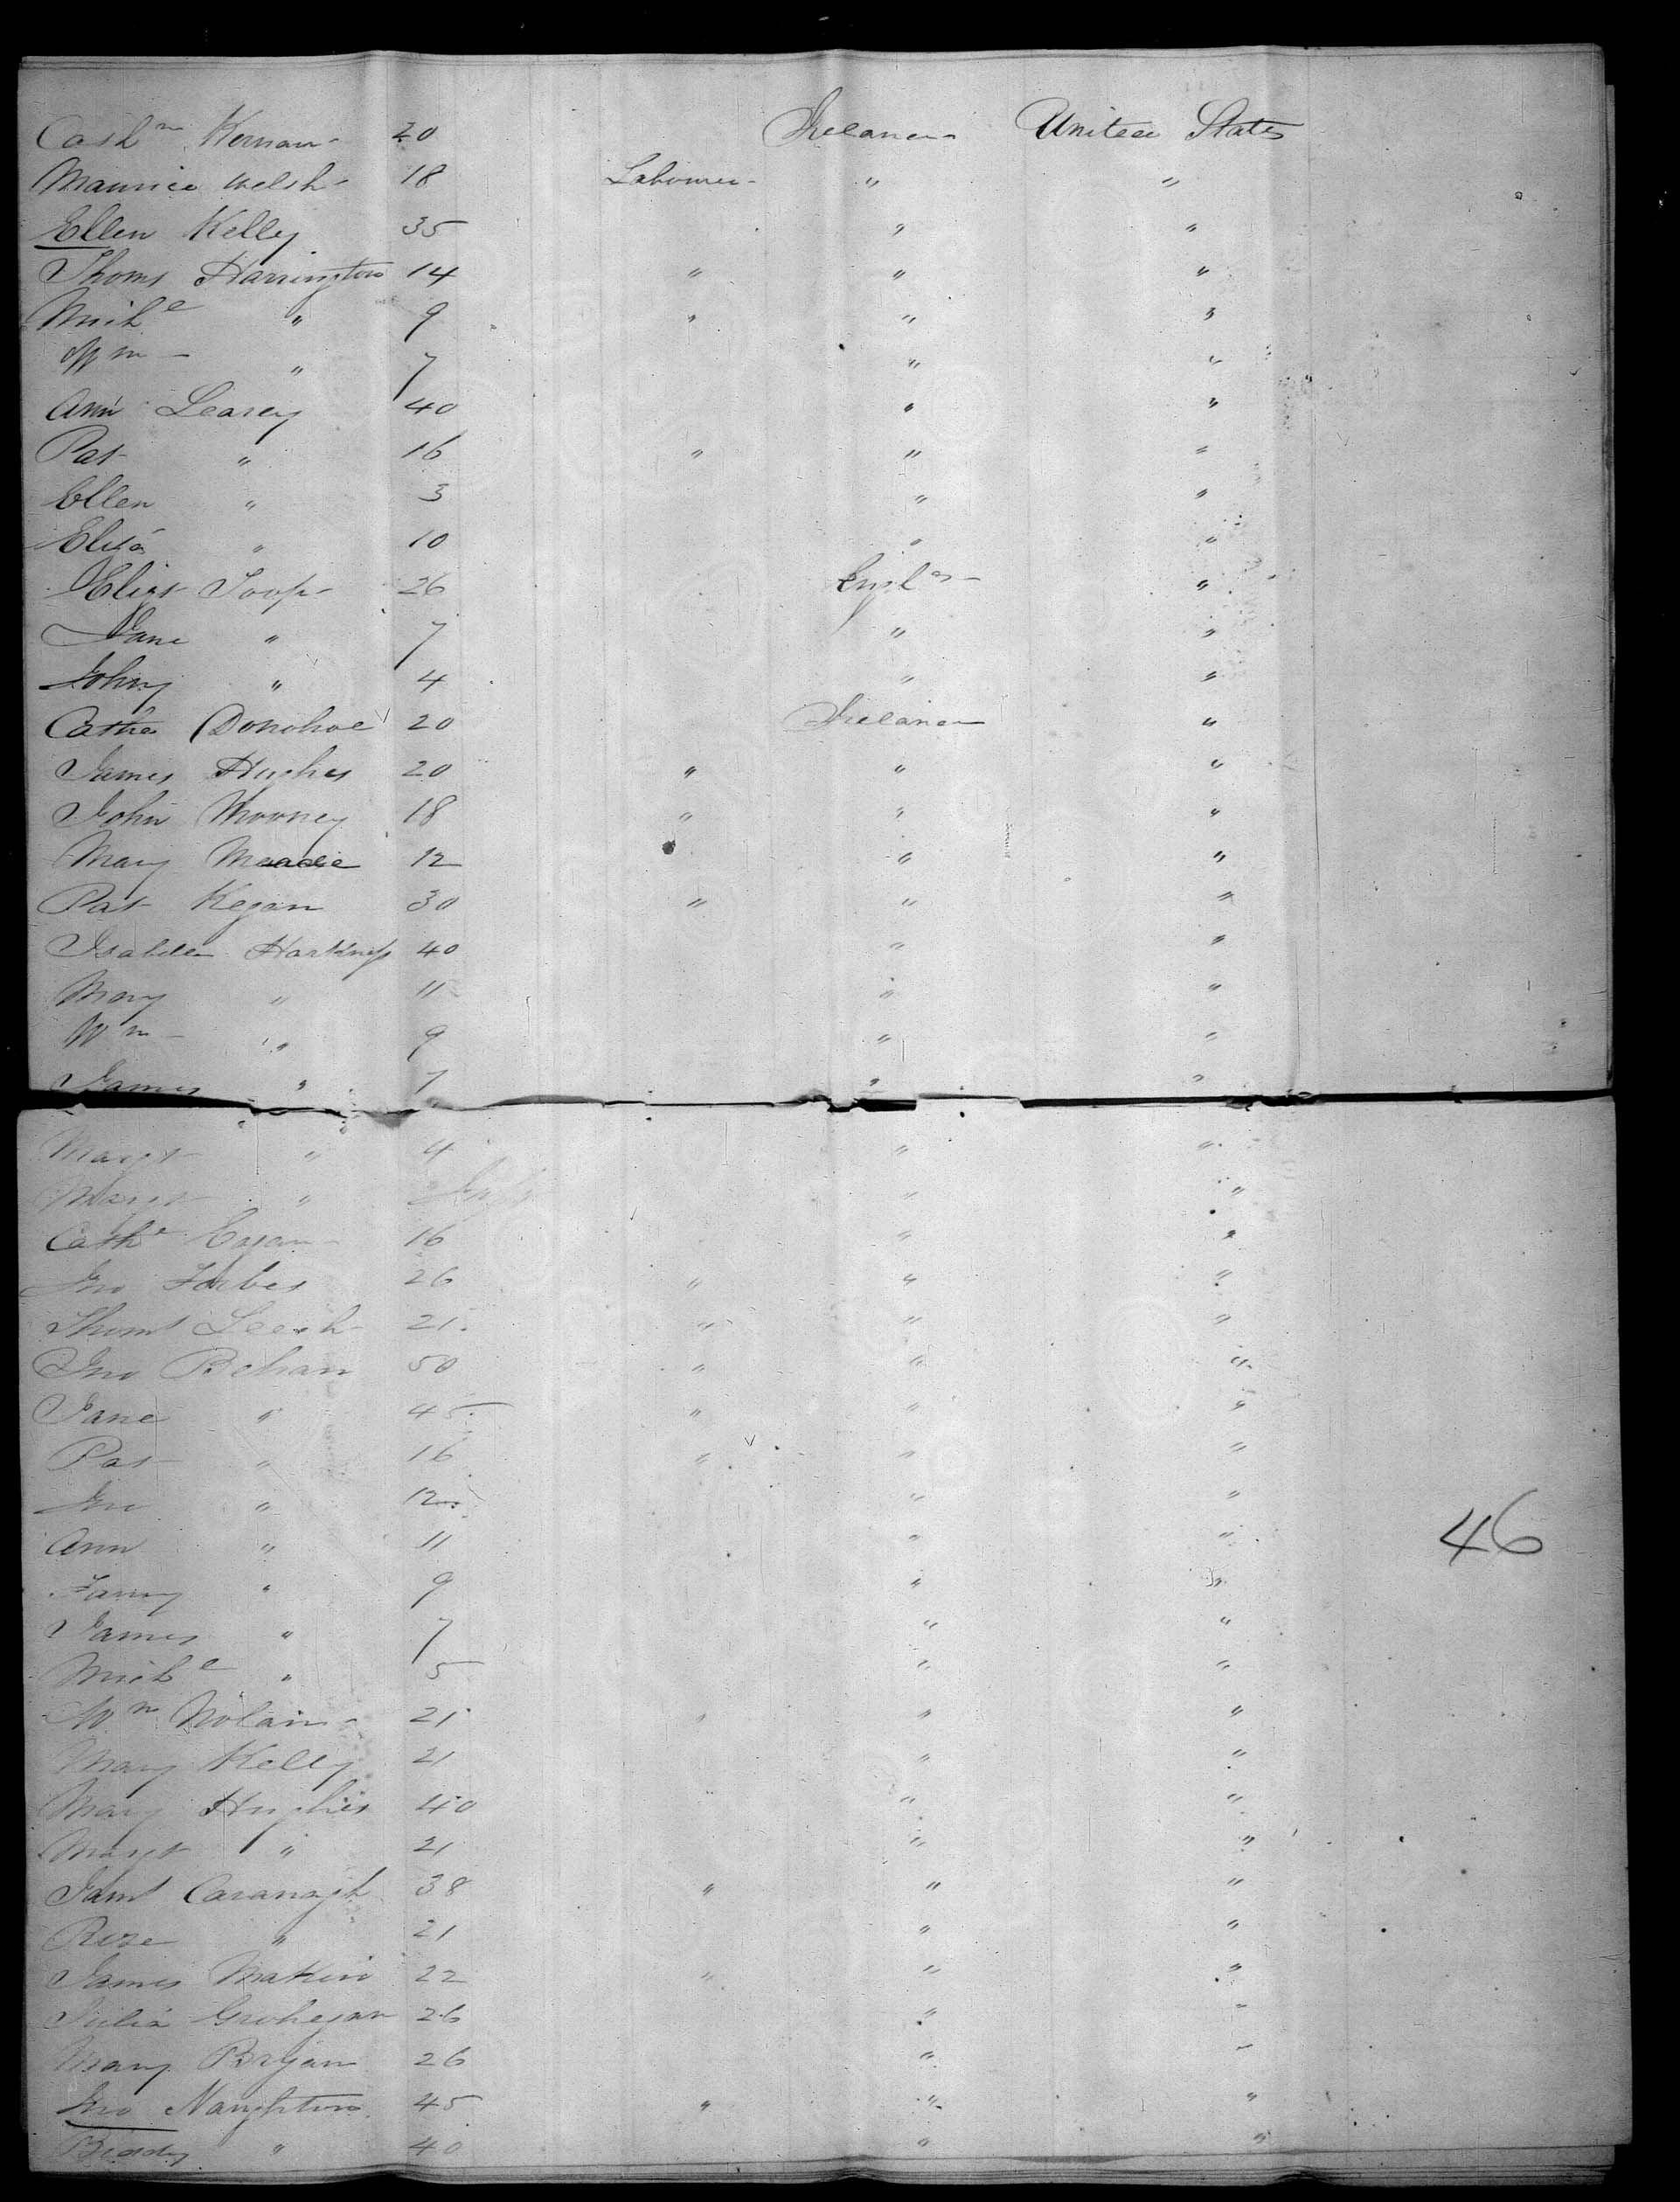 Cathne Kernan 20 Ireland United States
Maurice Welsh 18 Labourer " "
Ellen Kelly 35 " "
Thoms Harrington 14 " " "
Michl " 9 " " "
Wm " 7 " "
Ann Learey 40 " "
Pat " 16 " " "
Ellen " 3 " "
Eliza " 10 " "
Eliza 26 Engld "
Jane " 7 " "
Johny " 4 " "
Cathe Donohoe 20 Ireland "
James Hughes 20 " " "
John Mooney 18 " " "
Mary 12 " "
Pat Kegan 30 " " "
Isabella Harkness 40 " "
Mary " 11 " "
Wm " 9 " "
James " 7 " "
Margt " 4 " "
Margt " " "
Cathe 16 " "
Jno Forbes 26 " " "
Thoms Leech 21 " " "
Jno Behan 50 " " "
Jane " 45 " " "
Pat " 16 " " "
Jno " 12 " "
Ann " 11 " "
46
Fanny " 9 " "
James " 7 " "
Michl " 5 " "
Wm Nolan 21 " " "
Mary Kelly 21 " "
Mary Hughes 40 " "
Margt " 21 " "
Jams Cavanagh 38 " " "
Rose " 21 " "
James Makin 22 " " "
Julia Grohegan 26 " "
Mary Bryan 26 " "
Jno Naughton 45 " " "
Biddy " 40 " "